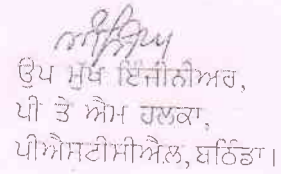 ਉਪ ਮੁੱਖ ਇੰਜੀਨੀਅਰ,
ਪੀ ਤੇ ਐਮ ਹਲਕਾ,
ਪੀਐਸਟੀਸੀਐਲ, ਬਠਿੰਡਾ।